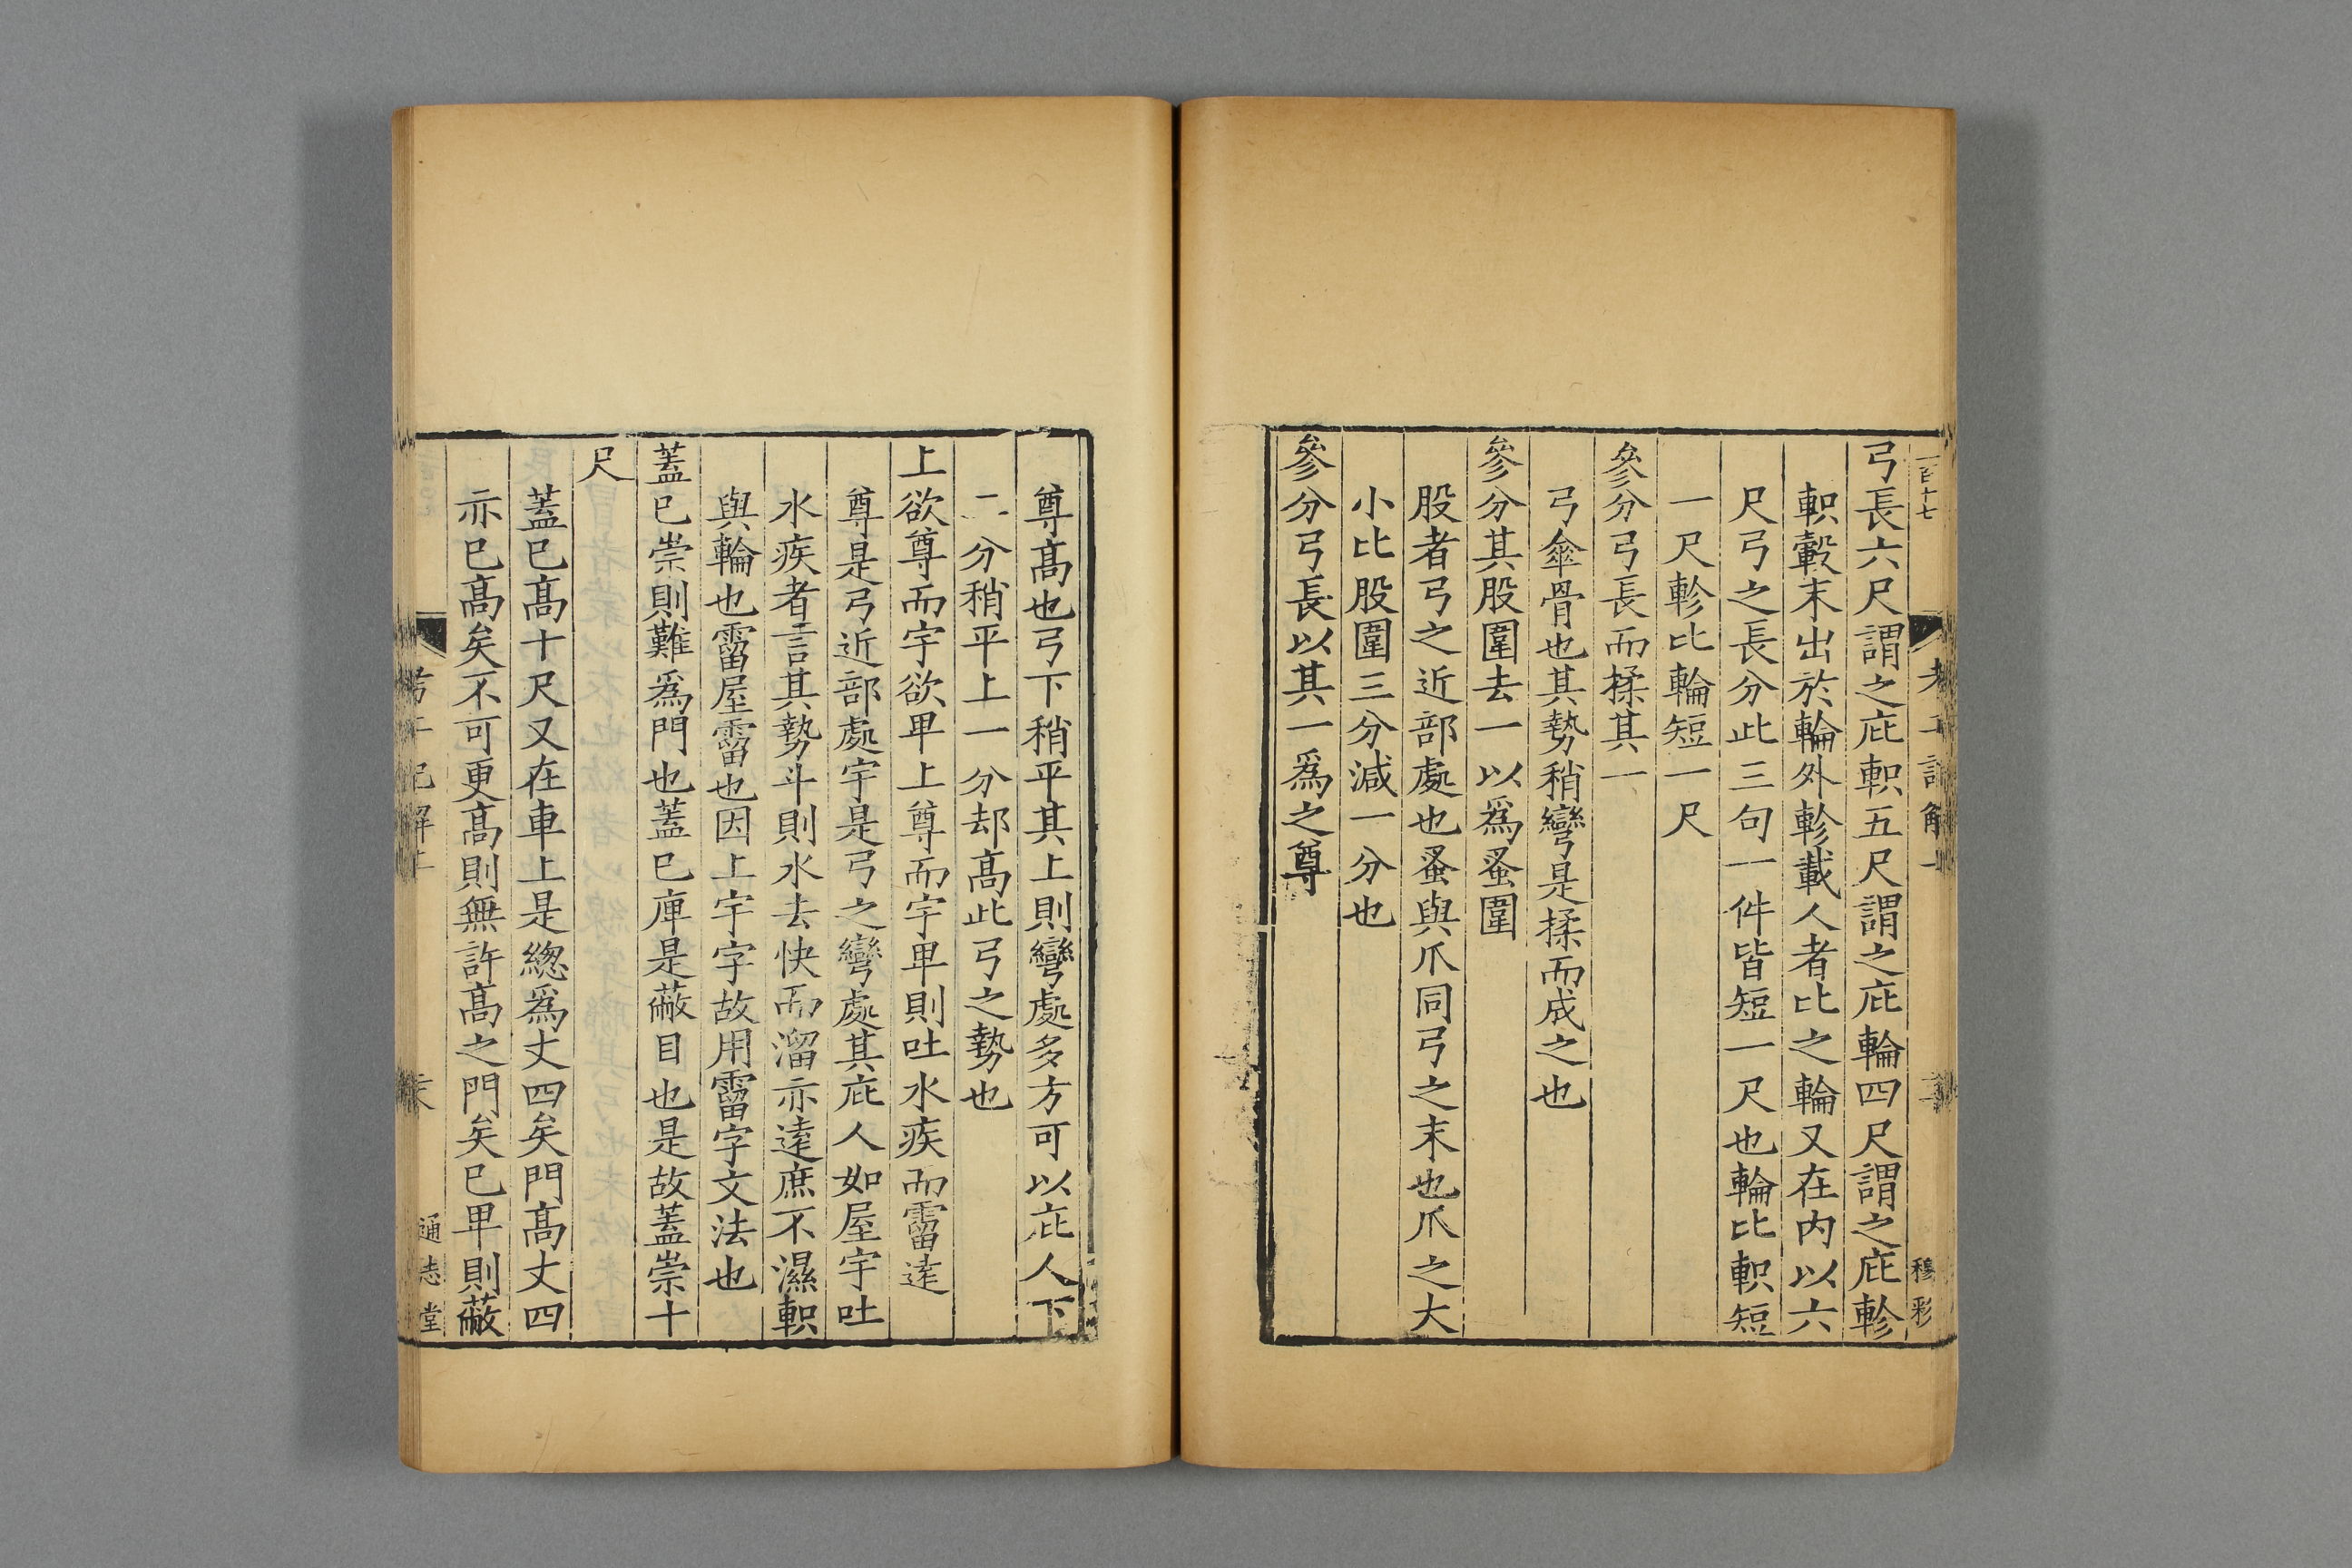 一百十七
穆彩
弓長六尺謂之庇軹五尺謂之庇輪四尺謂之庇軫
軹轂末出於輪外軫載人者比之輪又在内以六
尺弓之長分此三句一件皆短一尺也輪比軹短
一尺軫比輪短一尺
參分弓長而揉其一
弓傘骨也其勢稍彎是揉而成之也
參分其股圍去一以爲蚤圍
股者弓之近部處也蚤與爪同弓之末也爪之大
小比股圍三分減一分也
參分弓長以其一爲之尊
尊髙也弓下稍平其上則彎處多方可以庇人下
二分稍平上一分却髙此弓之勢也
上欲尊而宇欲卑上尊而宇卑則吐水疾而霤逺
尊是弓近部處宇是弓之彎處其庇人如屋宇吐
水疾者言其勢斗則水去快而溜亦逺庶不濕軹
與輪也霤屋霤也因上宇字故用霤字文法也
蓋已崇則難爲門也蓋已庳是蔽目也是故蓋崇十
尺
蓋已髙十尺又在車上是緫爲丈四矣門髙丈四
亦已髙矣不可更髙則無許髙之門矣已卑則蔽
通志堂